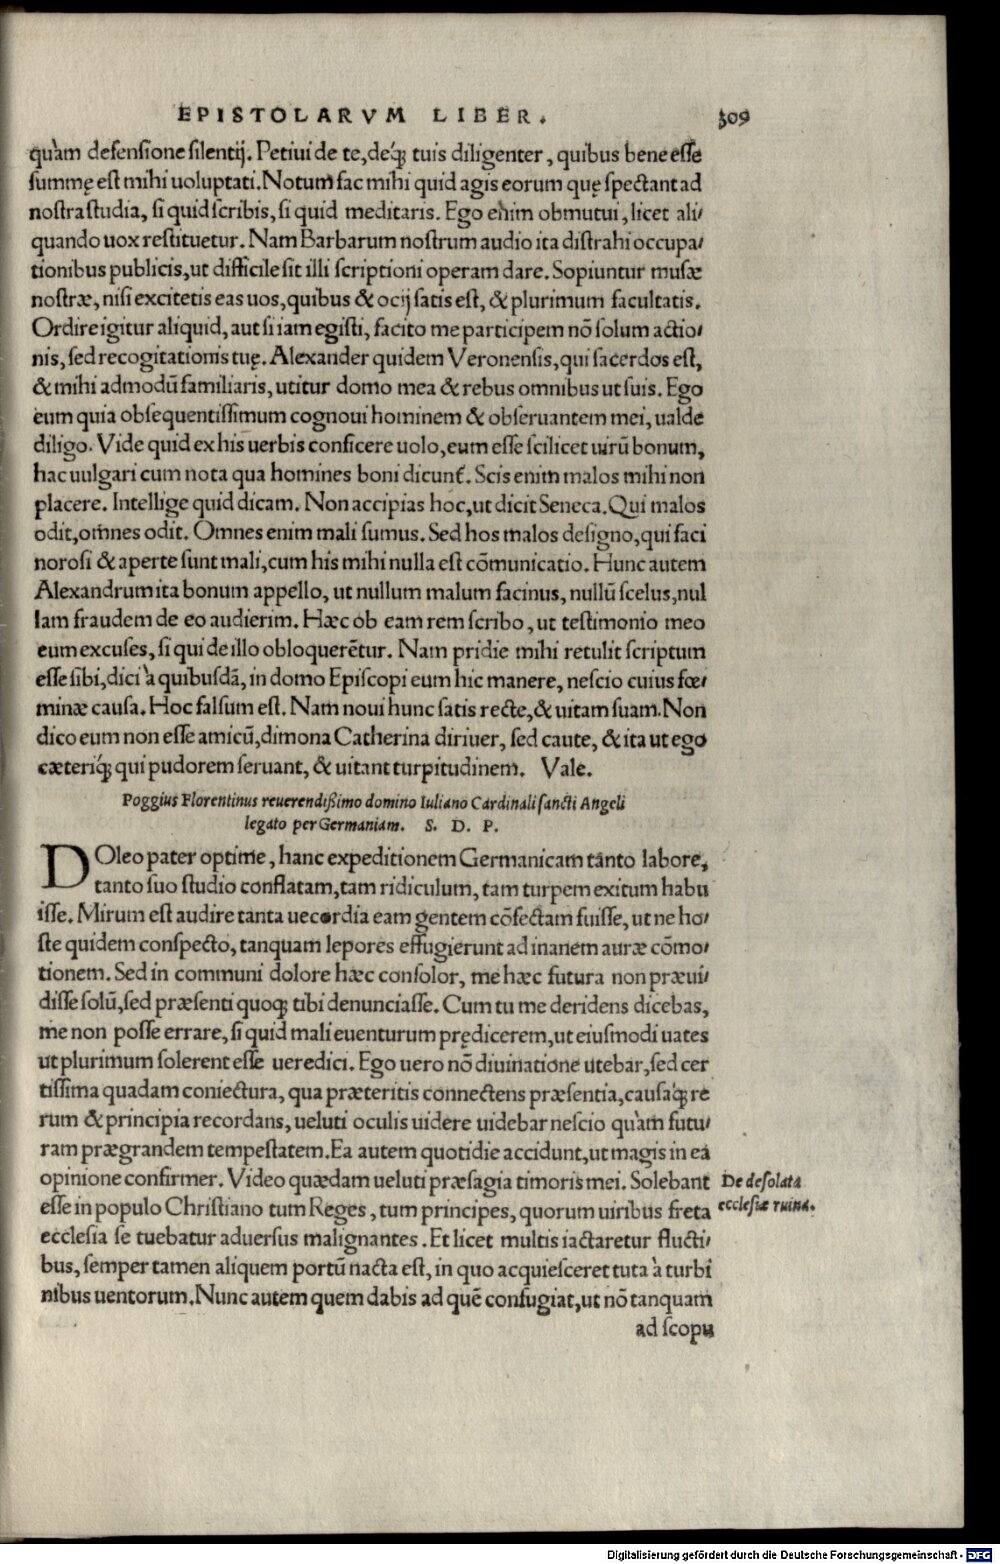 EPISTOLARVM LIBER. 309
quàm defensione silentij. Petiui de te, deq́; tuis diligenter, quibus bene esse
summę est mihi uoluptati. Notum fac mihi quid agis eorum quę spectant ad
nostra studia, si quid scribis, si quid meditaris. Ego enim obmutui, licet ali⸗
quando uox restituetur. Nam Barbarum nostrum audio ita distrahi occupa⸗
tionibus publicis, ut difficile sit illi scriptioni operam dare. Sopiuntur musæ
nostræ, nisi excitetis eas uos, quibus & ocij satis est, & plurimum facultatis.
Ordire igitur aliquid, aut si iam egisti, facito me participem nō solum actio⸗
nis, sed recogitationis tuę. Alexander quidem Veronensis, qui sacerdos est,
& mihi admodū familiaris, utitur domo mea & rebus omnibus ut suis. Ego
eum quia obsequentissimum cognoui hominem & obseruantem mei, ualde
diligo. Vide quid ex his uerbis conficere uolo, eum esse scilicet uirū bonum,
hac uulgari cum nota qua homines boni dicunt̃. Scis enim malos mihi non
placere. Intellige quid dicam. Non accipias hoc, ut dicit Seneca. Qui malos
odit, omnes odit. Omnes enim mali sumus. Sed hos malos designo, qui faci
norosi & aperte sunt mali, cum his mihi nulla est cōmunicatio. Hunc autem
Alexandrum ita bonum appello, ut nullum malum facinus, nullū scelus, nul
lam fraudem de eo audierim. Hæc ob eam rem scribo, ut testimonio meo
eum excuses, si qui de illo obloquerētur. Nam pridie mihi retulit scriptum
esse sibi, dici à quibusdā, in domo Episcopi eum hic manere, nescio cuius fœ⸗
minæ causa. Hoc falsum est. Nam noui hunc satis recte, & uitam suam. Non
dico eum non esse amicū, dimona Catherina diriuer, sed caute, & ita ut ego
cæteriq́; qui pudorem seruant, & uitant turpitudinem. Vale.
Poggius Florentinus reuerendißimo domino Iuliano Cardinali sancti Angeli
legato per Germaniam. S. D. P.
DOleo pater optime, hanc expeditionem Germanicam tanto labore,
tanto suo studio conflatam, tam ridiculum, tam turpem exitum habu
isse. Mirum est audire tanta uecordia eam gentem cōfectam fuisse, ut ne ho⸗
ste quidem conspecto, tanquam lepores effugierunt ad inanem auræ cōmo⸗
tionem. Sed in communi dolore hæc consolor, me hæc futura non præui⸗
disse solū, sed præsenti quoq; tibi denunciasse. Cum tu me deridens dicebas,
me non posse errare, si quid mali euenturum prędicerem, ut eiusmodi uates
ut plurimum solerent esse ueredici. Ego uero nō diuinatione utebar, sed cer
tissima quadam coniectura, qua præteritis connectens præsentia, causaq́; re
rum & principia recordans, ueluti oculis uidere uidebar nescio quàm futu⸗
ram prægrandem tempestatem. Ea autem quotidie accidunt, ut magis in ea
opinione confirmer. Video quædam ueluti præsagia timoris mei. Solebant
esse in populo Christiano tum Reges, tum principes, quorum uiribus freta
ecclesia se tuebatur aduersus malignantes. Et licet multis iactaretur flucti⸗
bus, semper tamen aliquem portū nacta est, in quo acquiesceret tuta à turbi
nibus uentorum. Nunc autem quem dabis ad quē confugiat, ut nō tanquam
ad scopu
De desolata
ecclesiæ ruina.
Digitalisierung gefördert durch die Deutsche Forschungsgemeinschaft - DFG